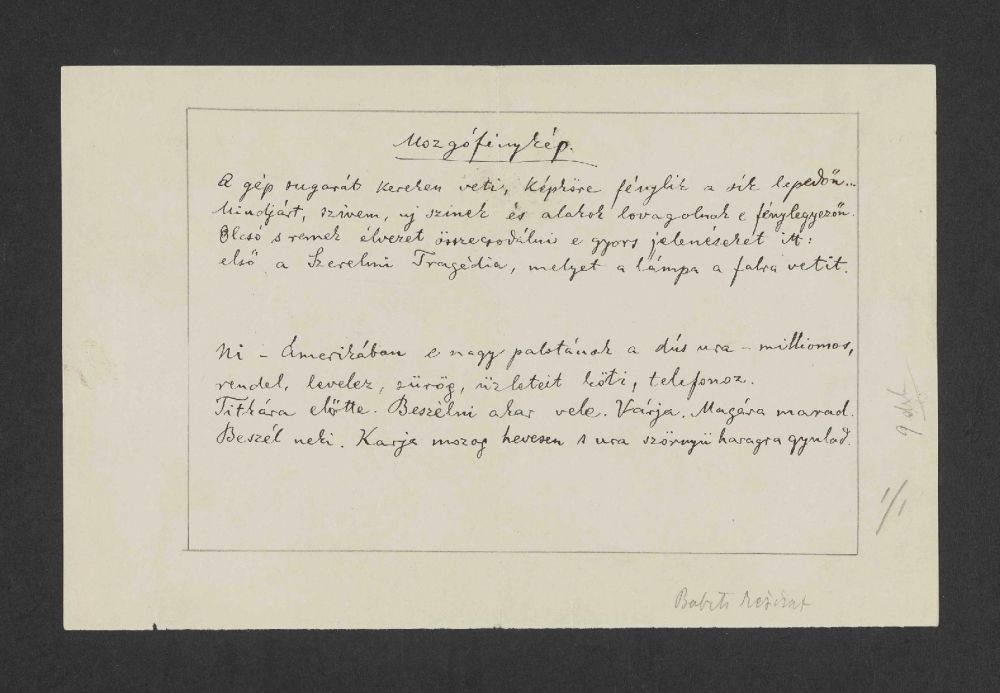 Mozgófénykép.
A gép sugarát kereken veti, képköre fénylik a sik lepedőn...
Mindjárt, szivem, uj szinek és alakok lovagolnak e fénylegyezőn.
Olcsó s remek élvezet összecsodálni e gyors jelenéseket itt:
első a Szerelmi Tragédia, melyet a lámpa a falra vetit.
Ni – Amerikában e nagy palotának a dús ura – milliomos,
rendel, levelez, sürög, üzleteit köti, telefonoz.
Titkára előtte. Beszélni akar vele. Várja. Magára marad.
Beszél neki. Karja mozog hevesen s ura szörnyü haragra gyulad.
9 drb
1/1
Babits kézirat